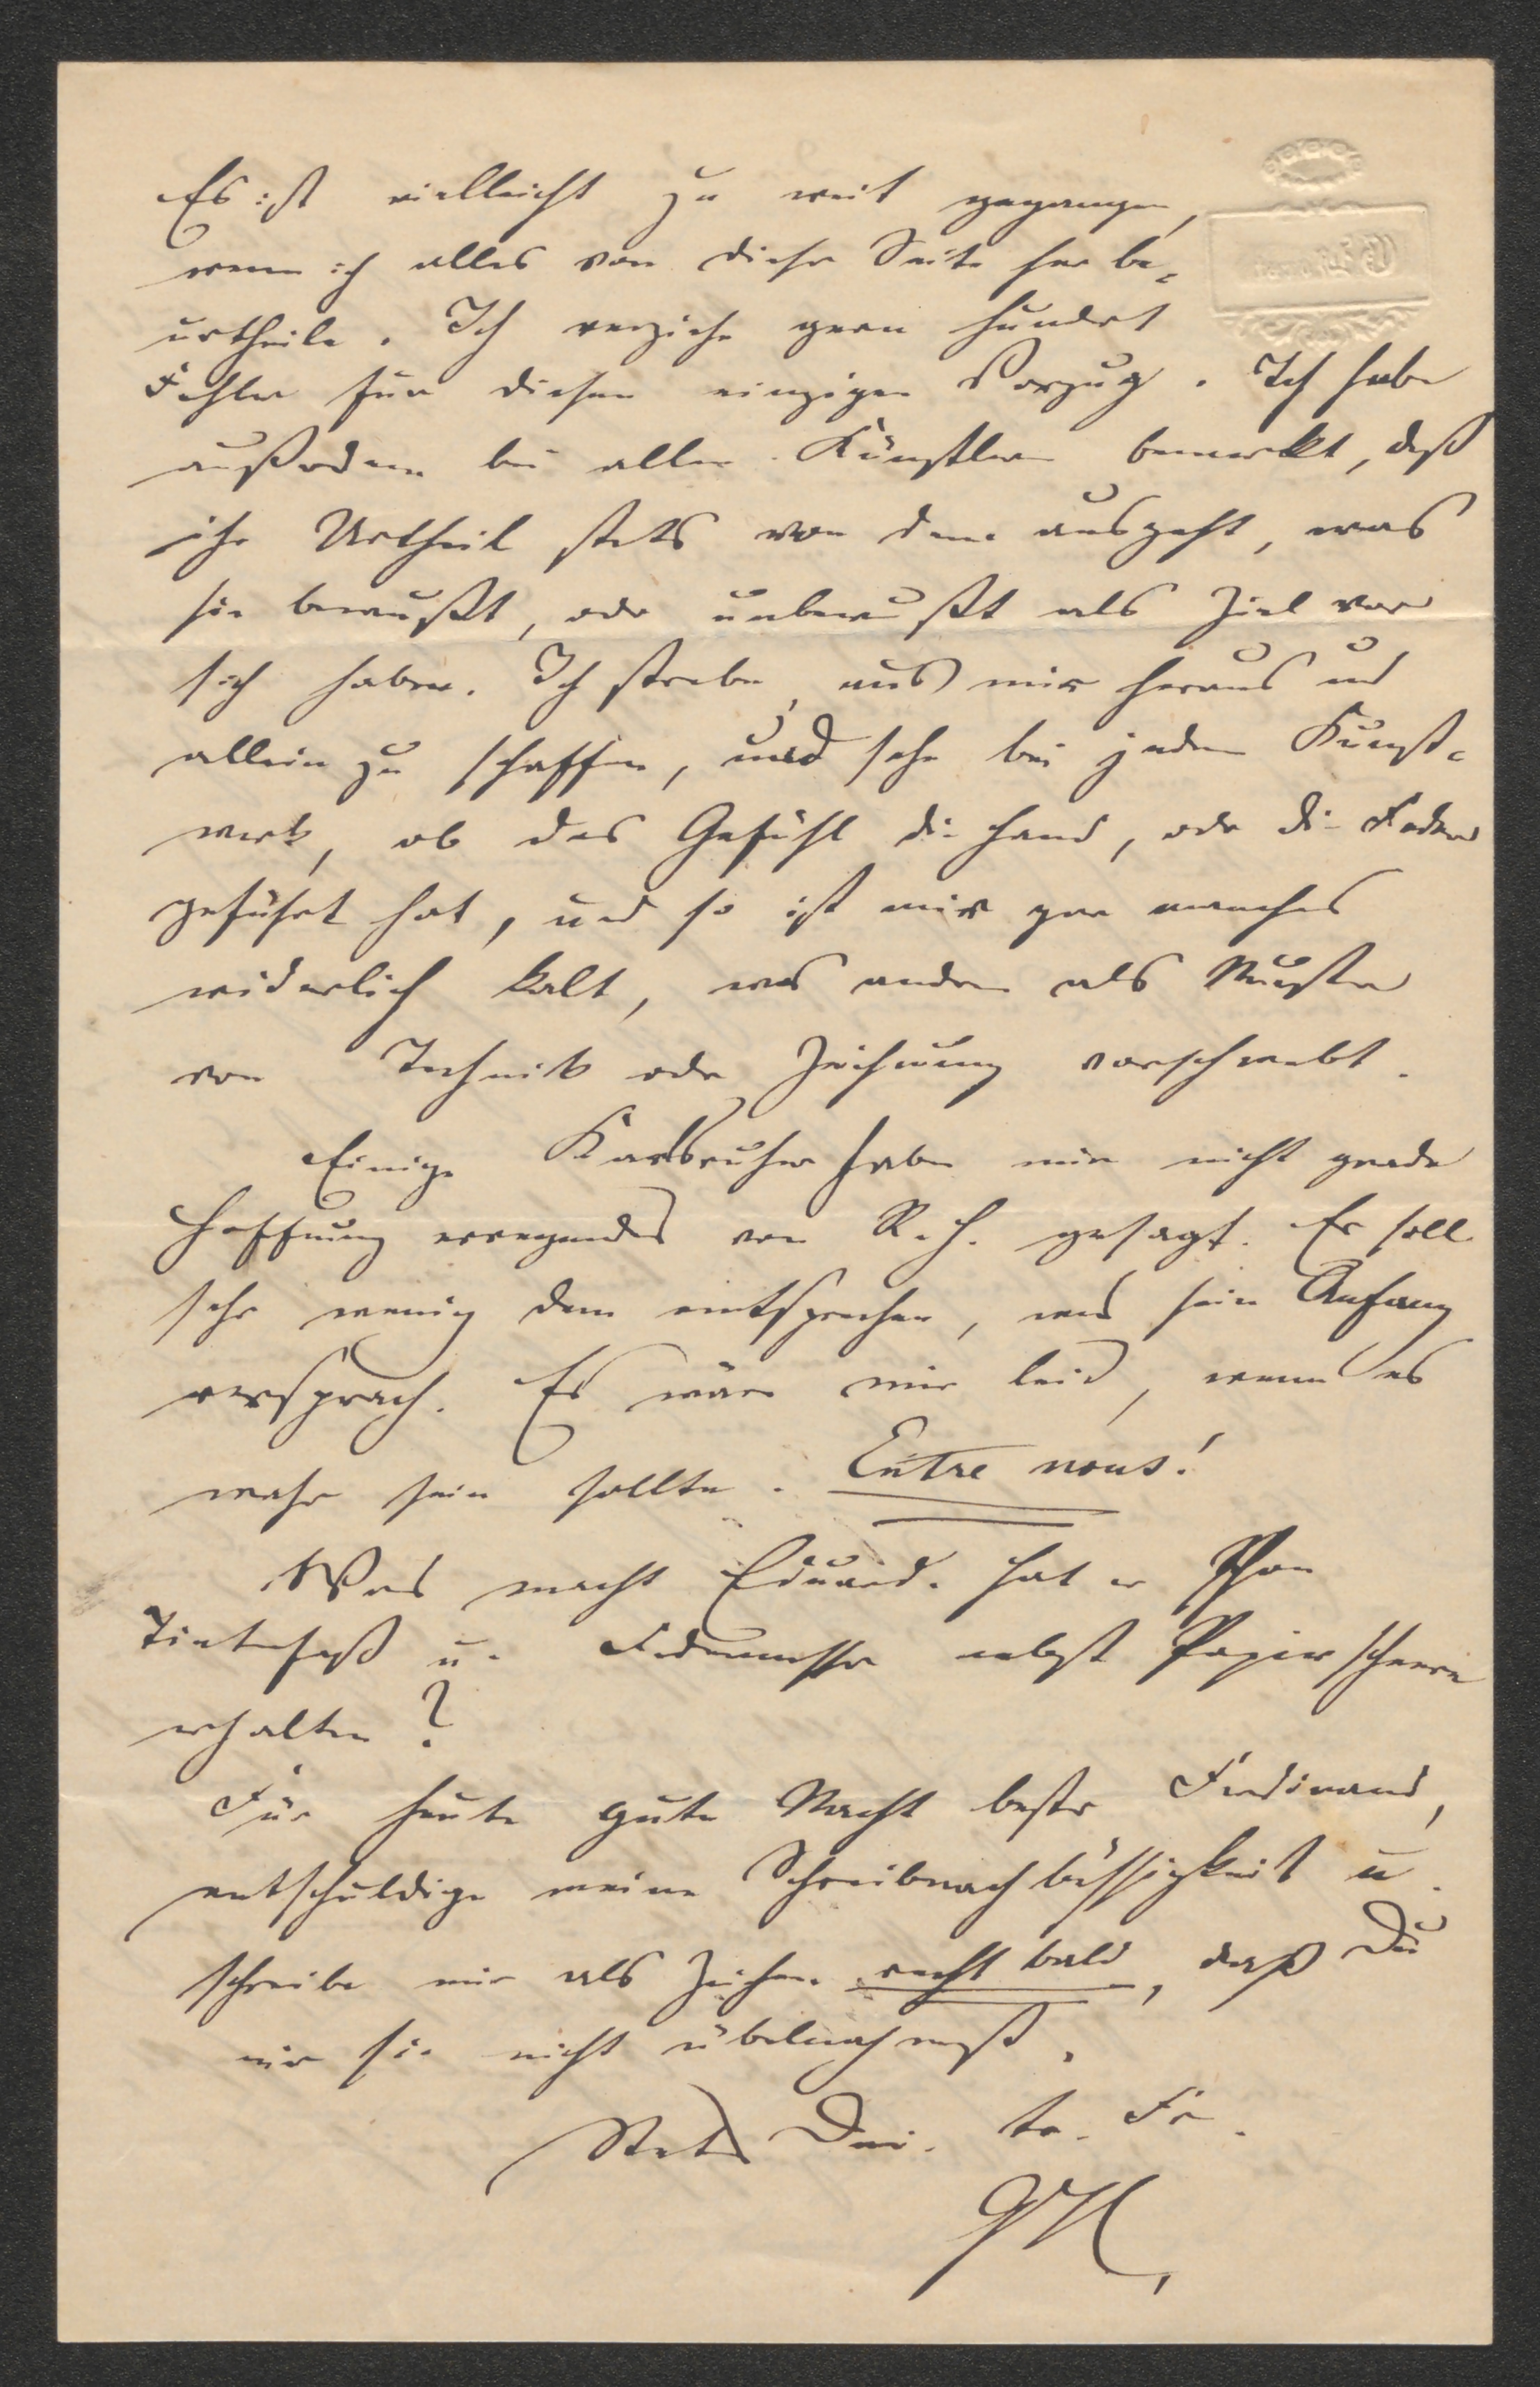 Es ist vielleicht zu weit gegangen,
wenn ich alles von dieser Seite her be-
urtheile. Ich verzeihe gern hundert
Fehler für diesen einzigen Vorzug. Ich habe
außerdem bei allen Künstlern bemerkt, daß
ihr Urtheil stets von dem ausgeht, was
sie bewußt, oder unbewußt als Ziel vor
sich haben. Ich strebe, aus mir heraus und
allein zu schaffen, und sehe bei jedem Kunst-
werk, ob das Gefühl die Hand, oder die Feder
geführt hat, und so ist mir gar manches
widerlich kalt, was andern als Muster
von Technik oder Zeichnung vorschwebt.
Einige Karlsruher haben mir nicht gerade
Hoffnung erregendes von R. H. gesagt. Er soll
sehr wenig dem entsprechen, was sein Anfang
versprach. Es wäre mir leid, wenn es
wahr sein sollte. Entre nous!
Was macht Eduard. Hat er schon
Tintenfaß u. Federmesser nebst Papierscheere
erhalten?
Für heute gute Nacht bester Ferdinand,
entschuldige meine Schreibnachlässigkeit u.
schreibe mir als Zeichen recht bald, daß Du
mir sie nicht übelnahmst.
Stets Dein tr. Fr.